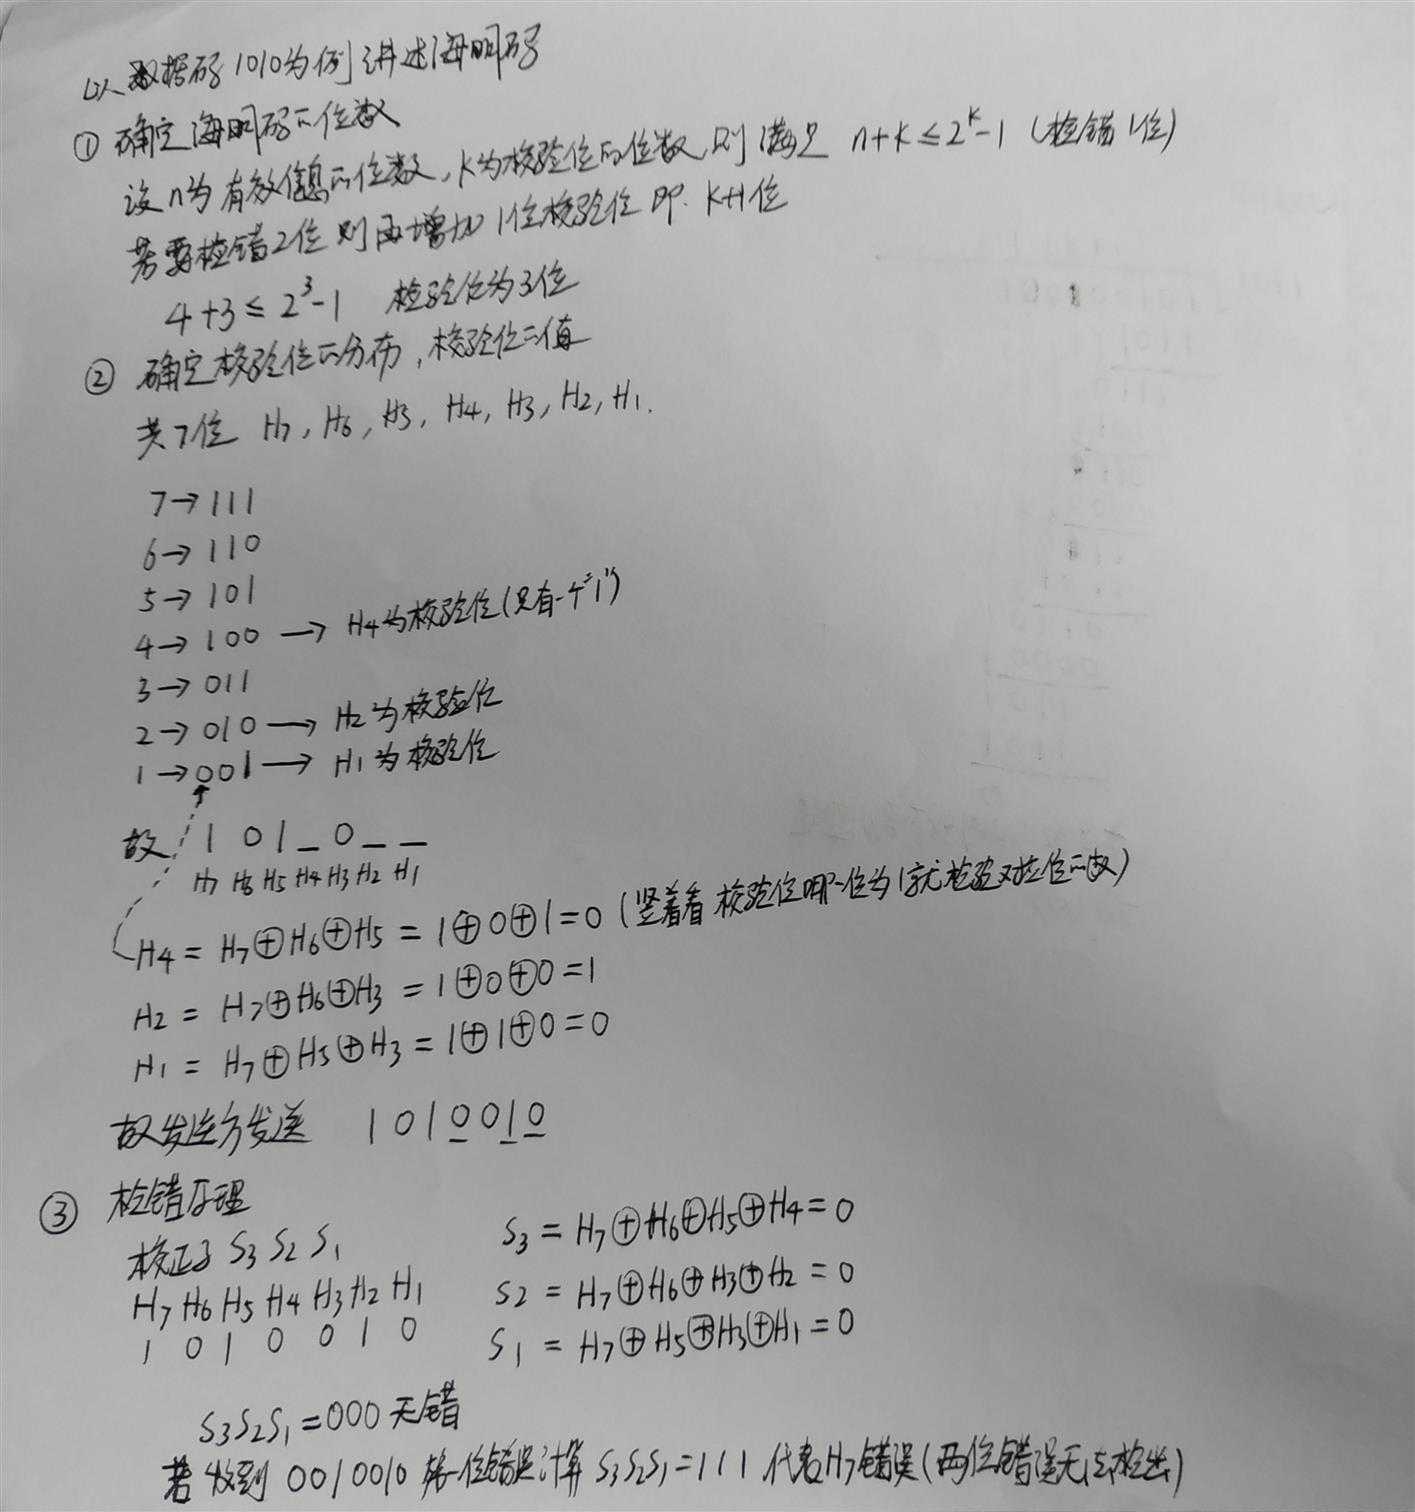 以数据码1010为例讲述海明码
① 确定海明码的位数
设n为有效信息的位数,k为校验位的位数,则满足 n+k≤2^k-1 (检错1位)
若要检错2位则再增加1位校验位 即 k+1位
4+3≤2^3-1 检验位为3位
② 确定校验位的分布,校验位的值
共7位 H7, H6, H5, H4, H3, H2, H1.
7→111
6→110
5→101
4→100 → H4为校验位(只有一个"1")
3→011
2→010 → H2为校验位
1→001 → H1为校验位
故 1 0 1 _ 0 _ _
H7 H6 H5 H4 H3 H2 H1
H4 = H7⊕H6⊕H5 = 1⊕0⊕1=0 (竖着看 校验位哪一位为1就检验对应位的数)
H2 = H7⊕H6⊕H3 = 1⊕0⊕0=1
H1 = H7⊕H5⊕H3 = 1⊕1⊕0=0
故发送方发送 1010010
③ 检错原理
校正子 S3 S2 S1
S3 = H7⊕H6⊕H5⊕H4=0
H7 H6 H5 H4 H3 H2 H1
S2 = H7⊕H6⊕H3⊕H2=0
1 0 1 0 0 1 0
S1 = H7⊕H5⊕H3⊕H1=0
S3S2S1=000 无错
若收到 0010010 第一位错误计算 S3S2S1=111 代表H7错误(两位错误无法检出)